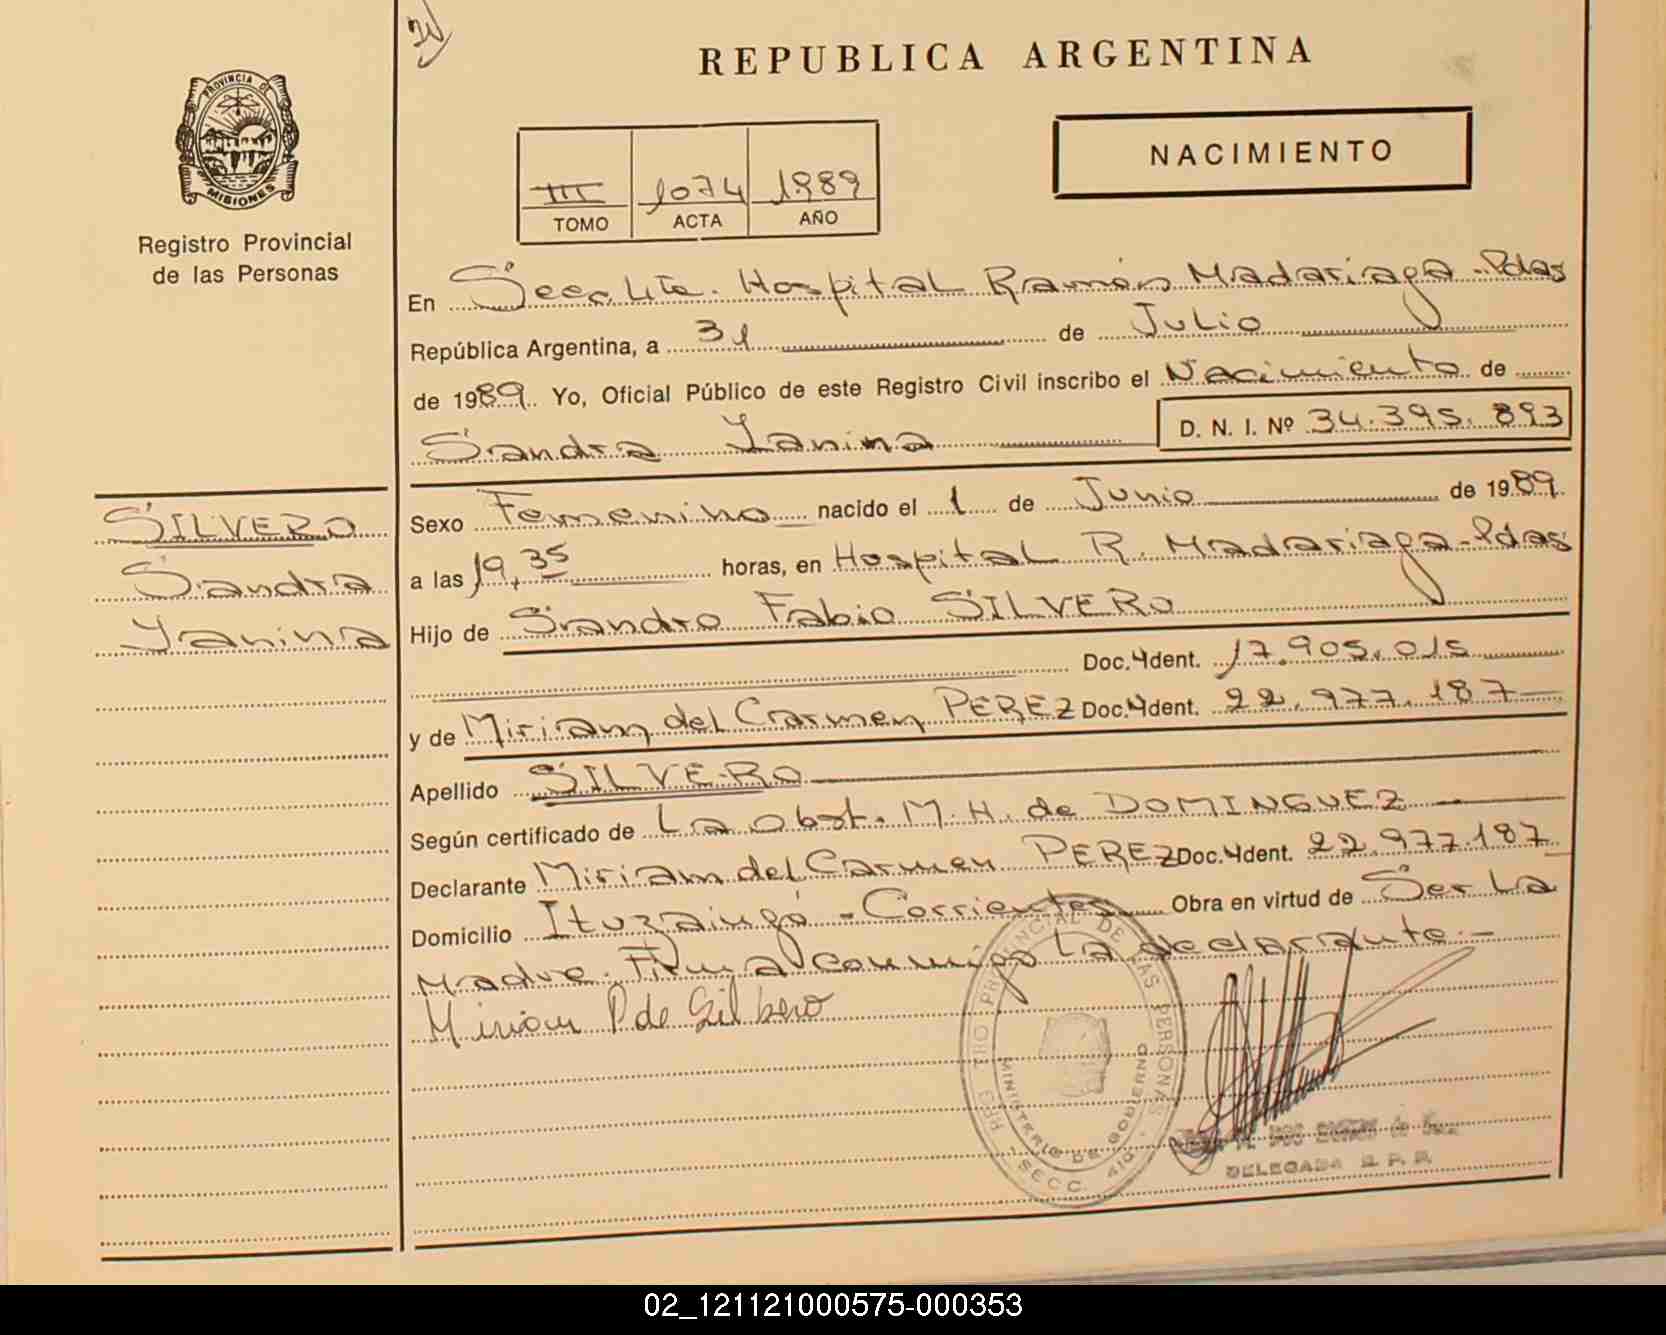 REPUBLICA ARGENTINA
PROVINCIA DE
MISIONES
Registro Provincial
de las Personas
NACIMIENTO
III 1074 1989
TOMO ACTA AÑO
En Secc. 4ta. Hospital Ramón Madariaga - Pdas
República Argentina, a 31 de Julio
de 1989. Yo, Oficial Público de este Registro Civil inscribo el Nacimiento de
Sandra Yanina D. N. I. Nº 34.395.893
SILVERO
Sandra
Yanina
Sexo Femenino nacido el 1 de Junio de 1989
a las 19,35 horas, en Hospital R. Madariaga - Pdas
Hijo de Sandro Fabio SILVERO
Doc. Ident. 17.905.015
y de Miriam del Carmen PEREZ Doc. Ident. 22.977.187
Apellido SILVERO
Según certificado de La Obst. M. H. de DOMINGUEZ
Declarante Miriam del Carmen PEREZ Doc. Ident. 22.977.187
Domicilio Ituzaingó - Corrientes Obra en virtud de Ser La
Madre. Firma conmigo La declarante.-
Miriam P de Silbero
REGISTRO PROVINCIAL DE LAS PERSONAS
MINISTERIO DE GOBIERNO
SECC. 4ta
DELEGADA R. P. P.
02_121121000575-000353